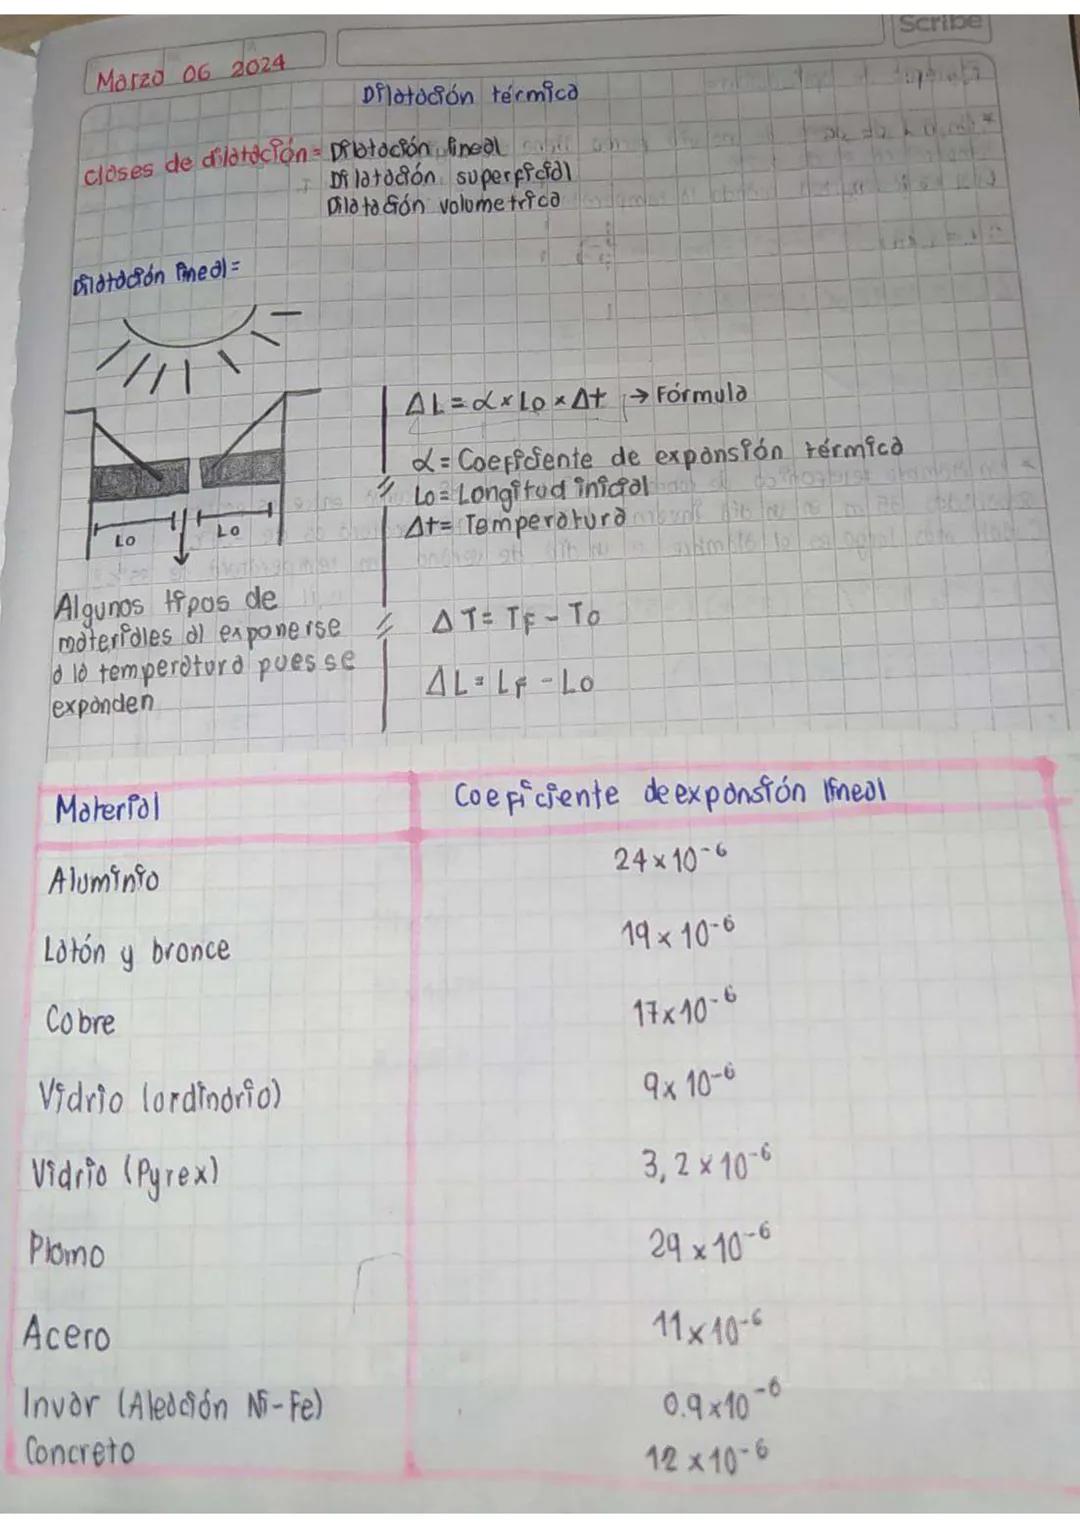 Scribe
Marzo 06 2024
Dilatación térmica
Clases de dilatación = Dilatación lineal
Dilatación superficial
Dilatación volumetrica
Dilatación lineal =
ΔL = α × Lo × Δt → Fórmula
α = Coeficiente de expansión térmica
Lo = Longitud inicial
Δt = Temperatura
Lo Lo
Algunos tipos de
materiales al exponerse
a la temperatura pues se
expanden
ΔT = TF - To
ΔL = LF - Lo
Material Coeficiente de expansión lineal
Aluminio 24 × 10⁻⁶
Latón y bronce 19 × 10⁻⁶
Cobre 17 × 10⁻⁶
Vidrio (ordinario) 9 × 10⁻⁶
Vidrio (Pyrex) 3,2 × 10⁻⁶
Plomo 29 × 10⁻⁶
Acero 11 × 10⁻⁶
Invar (Aleación Ni-Fe) 0.9 × 10⁻⁶
Concreto 12 × 10⁻⁶